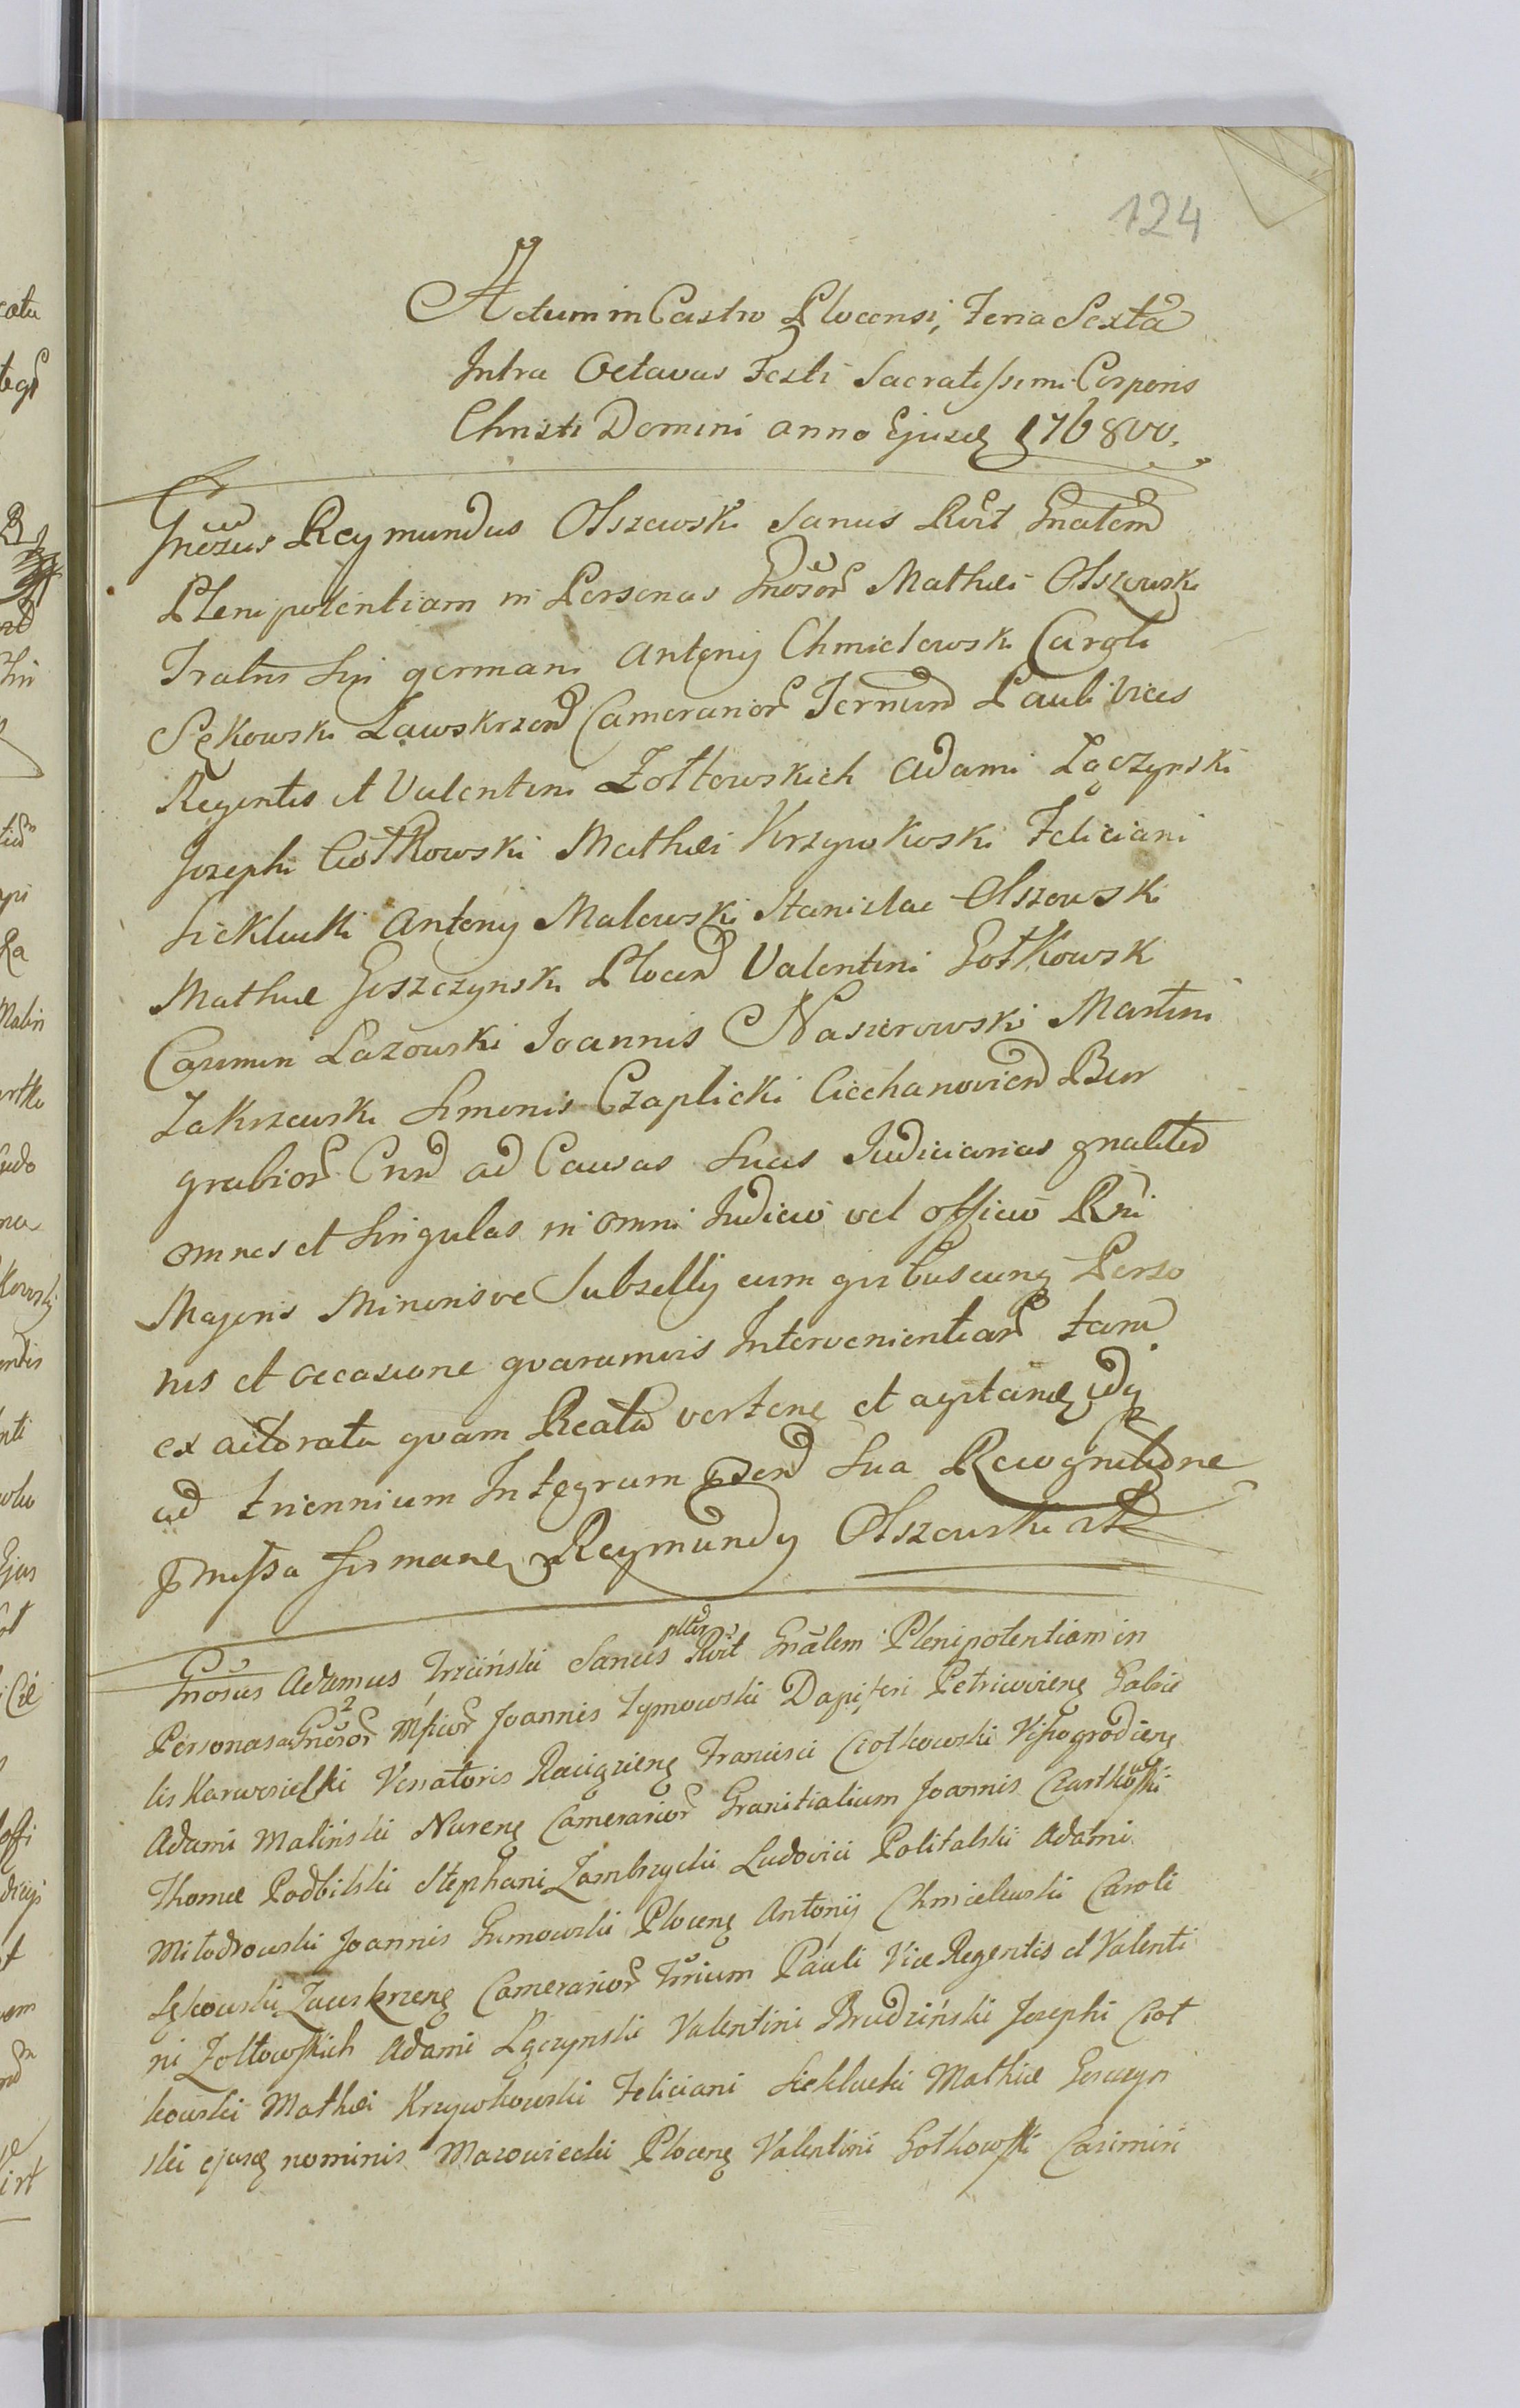 124
Actum in Castro Plocensi, Feria Sexta
Intra Octavas Festi Sacratissimi Corporis
Christi Domini anno Ejusd 1768vo.
Gnosus Reymundus Olszewski Sanus Rvit Gnalem
Plenipotentiam in Personas Gnosor Mathei Olszewski
Fratris Sui germani Antonij Chmielewski Caroli
Sękowski Zawskrzen Camerarior Terrium Pauli Vices
Regentis et Valentini Żołtowskich Adami Łączynski
Josephi Ciołkowski Mathei Krzywkoski Feliciani
Siekłucki Antonij Malewski Stanislai Olszewski
Mathiae Goszczynski Plocen Valentini Gołkowsk
Casimiri Lazowski Joannis Nasierowski Martini
Zakrzewski Simonis Czaplicki Ciechanovien Bur
grabior Cnd ad Causas Suas Judiciarias gnaliter
omnes et Singulas in omni Judicio vel officio Rni
Majoris Minorisve Subsellij cum gvibuscunq Perso
nis et occasione qvarumvis Intervenientiar tam
ex actoratu qvam Reatu verten et agitand
ad triennium Integrum psen Sua Recognitione
pmissa firman Reymundy Olszewski
Gnosus Adamus Trzciński Sanus plltr Rvit Gnalem Plenipotentiam in
Personas Gnosor Mficor Joannis Tymowski Dapiferi Petricovien Gabrie
lis Karwosielki Venatoris Raciązien Francisci Ciołkowski Visogrodien
Adami Maliński Nuren Camerarior Granitialium Joannis Czartkoski
Thomae Podbilski Stephani Zambrzycki Ludovici Politalski Adami
Miłodrowski Joannis Gumowski Plocen Antonij Chmielewski Caroli
Sękowski Zawskrzen Camerarior Trrium Pauli Vice Regentis et Valenti
ni Żołtowskich Adami Łączynski Valentini Brudziński Josephi Cioł
kowski Mathei Krzywkowski Feliciani Siekłucki Mathiae Goszczyn
ski ejusd nominis Mazowiecki Plocen Valentini Gołkowski Casimiri